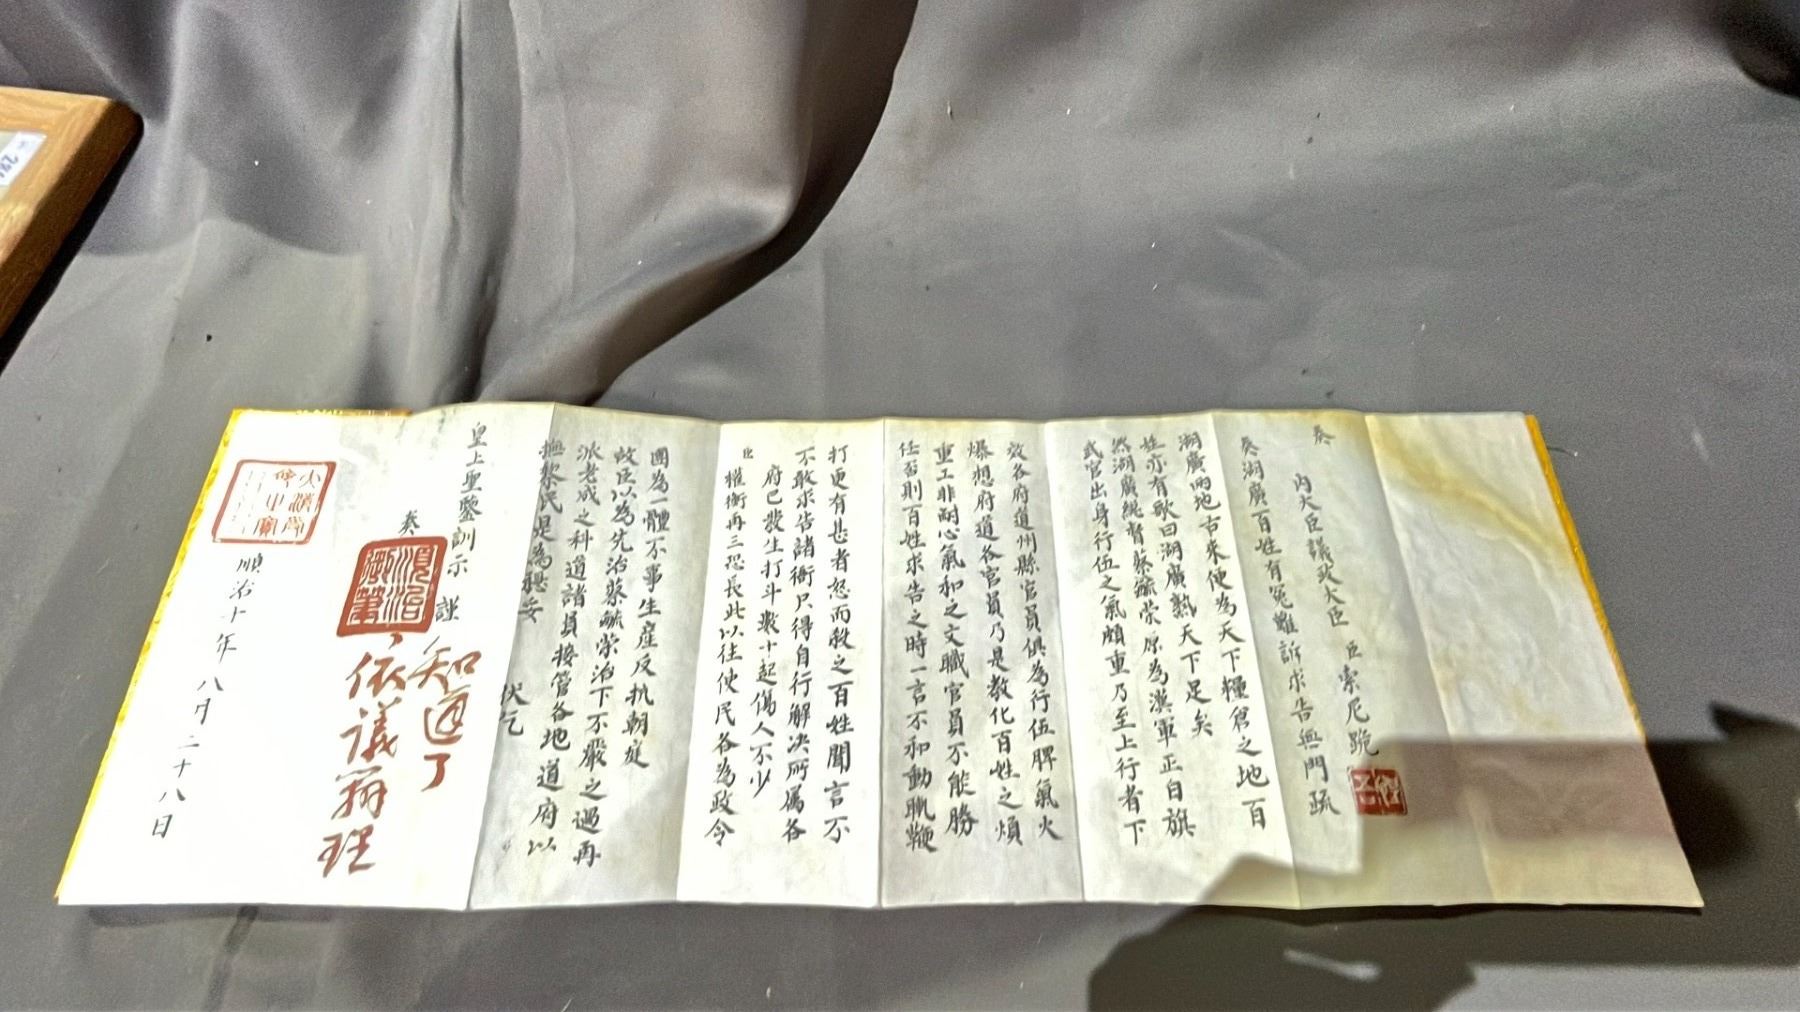 奏
内大臣議政大臣 臣索尼跪
奏湖廣百姓有冤難訴求告無門疏
湖廣兩地古來便為天下糧倉之地百
姓亦有歌曰湖廣熱天下足矣
然湖廣總督蔡毓榮原為漢軍正白旗
武官出身行伍之氣頗重乃至上行者下
效各府道州縣官員俱為行伍脾氣火
爆想府道各官員乃是教化百姓之煩
重工非耐心氣和之文職官員不能勝
任否則百姓求告之時一言不和動輒鞭
打更有甚者怒而殺之百姓聞言不
不敢求告諸衙只得自行解決所屬各
府已發生打斗數十起傷人不少
臣權衡再三恐長此以往使民各為政令
國為一體不事生產反抗朝庭
故臣以為先治蔡毓榮治下不嚴之過再
派老成之科道諸員接管各地道府以
撫黎民是為穩妥
伏乞
皇上聖鑒訓示 謹
奏
順治御筆
知道了
依議辦理
順治十年八月二十八日